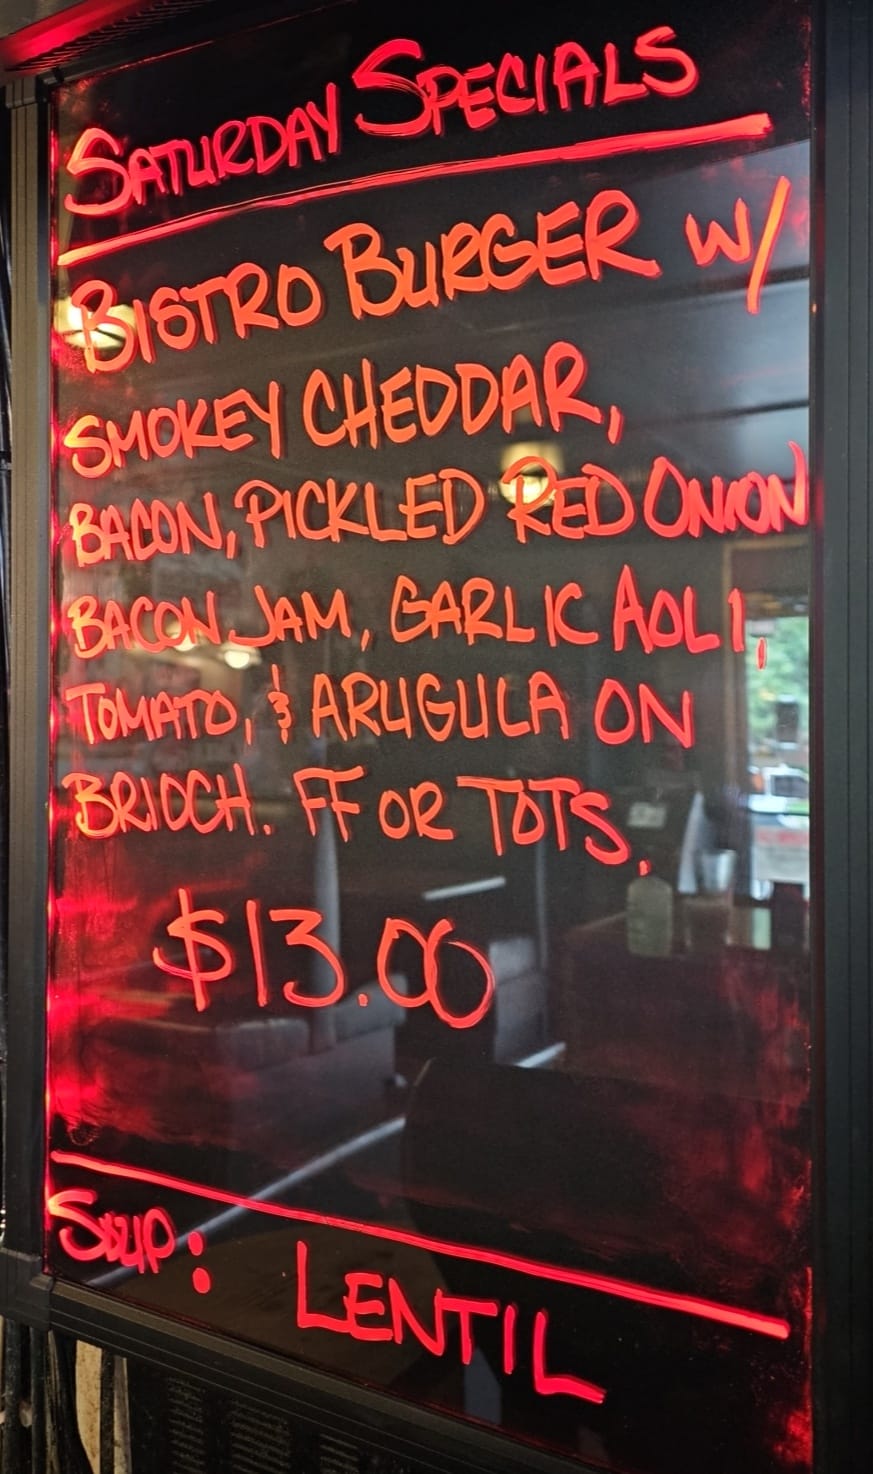 SATURDAY SPECIALS
BISTRO BURGER W/
SMOKEY CHEDDAR,
BACON, PICKLED RED ONION
BACON JAM, GARLIC AOLI,
TOMATO, & ARUGULA ON
BRIOCH. FF OR TOTS.
$13.00
SOUP: LENTIL